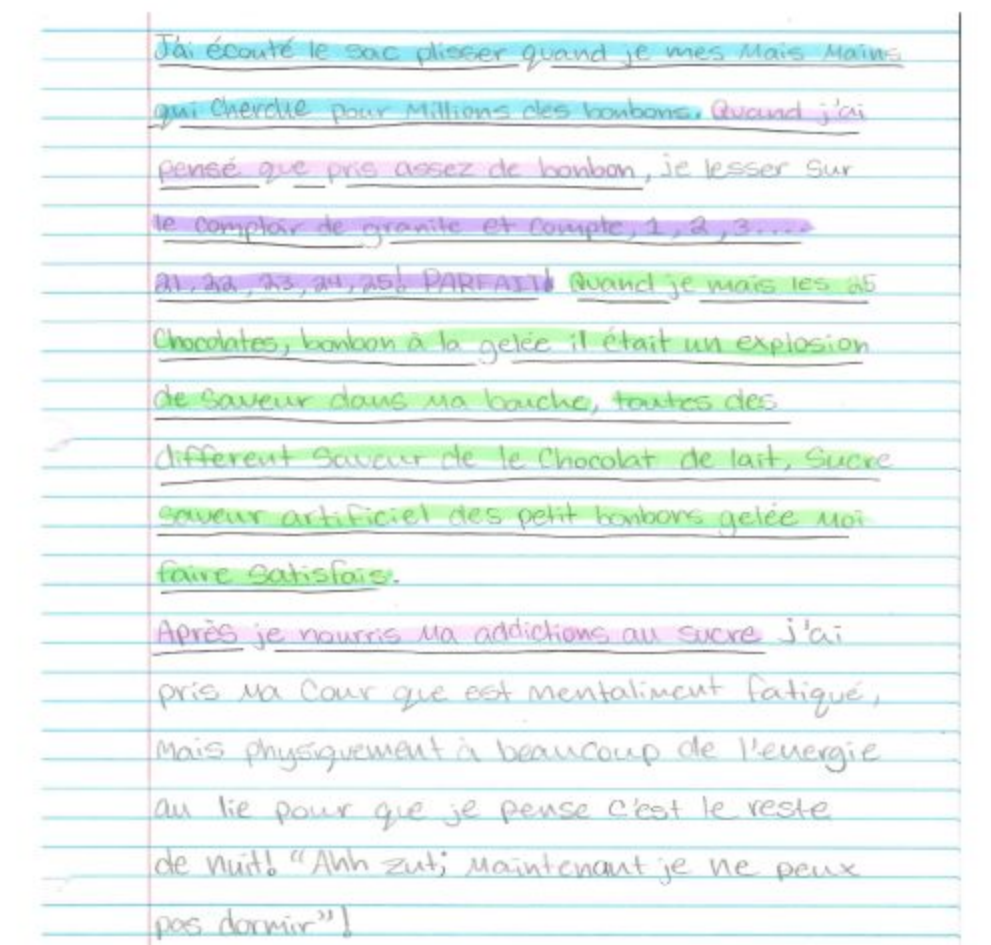 J'ai écouté le sac plisser quand je mes Mais Mains
qui cherche pour Millions des bonbons. Quand j'ai
pensé que pris assez de bonbon, je lesser sur
le comptoir de granite et compte, 1, 2, 3....
21, 22, 23, 24, 25! PARFAIT! Quand je mais les 25
Chocolates, bonbon à la gelée il était un explosion
de saveur dans ma bouche, toutes des
different saveur de le Chocolat de lait, Sucre
saveur artificiel des petit bonbons gelée moi
faire satisfais.
Après je nourris ma addictions au sucre j'ai
pris ma Cour que est mentaliment fatigué,
Mais physiquement à beaucoup de l'energie
au lie pour que je pense c'est le reste
de nuit! "Ahh zut; Maintenant je ne peux
pas dormir"!